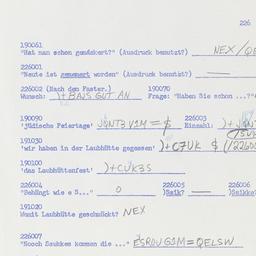 226
190061
"Hat man schon gemäskert?" (Ausdruck benutzt?) NEX/
226001
"Heute ist gemenert worden" (Ausdruck benutzt?)
226002 (Nach dem Fasten.) 190070
Wunsch: )+BAJS GUT AN Frage: "Haben Sie schon ...?"
190090 226003
'jüdische Feiertage' Einzahl:
191030
'wir haben in der Laubhütte gegessen' )+C7UK $
190100
'das Laubhüttenfest' )+CUK3S
226004 226005 226006
"Behüngt wie e S..." O )Szik?
191020
Womit Laubhütte geschmückt? NEX
226007
"Nooch Szukkes kommen die ..." =QELSW